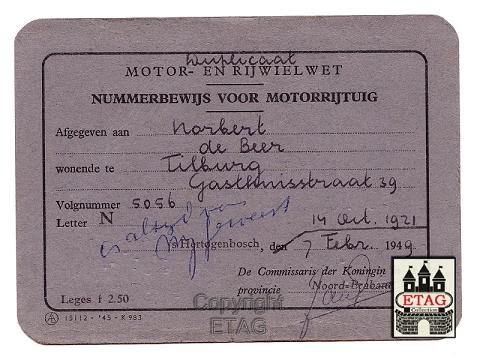 Duplicaat
MOTOR- EN RIJWIELWET
NUMMERBEWIJS VOOR MOTORRIJTUIG
Afgegeven aan Norbert
de Beer
wonende te Tilburg
Gasthuisstraat 39
Volgnummer 5056
Letter N
is altijd van mij geweest
14 Oct. 1921
's Hertogenbosch, den 7 Febr. 1949
De Commissaris der Koningin
provincie Noord-Brabant
Leges f 2.50
A 15112 - '45 - K 983
Copyright
ETAG
ETAG
Collection